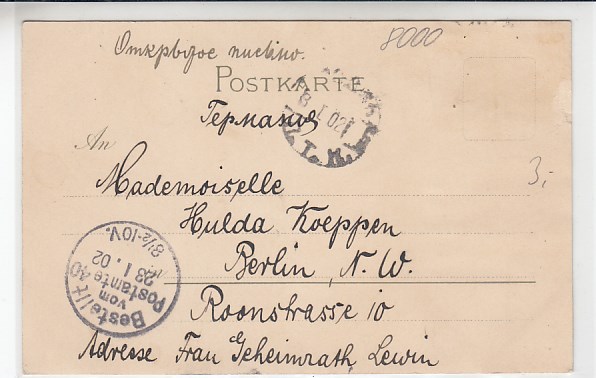 8000
Открытое письмо.
POSTKARTE
Германия
An
3,-
Mademoiselle
Hulda Koeppen
Berlin, N. W.
Roonstrasse 10
Adresse Frau Geheimrath Lewin
Bestellt
vom
Postamte 40
23 1. 02
8½-10V.
8 I 02